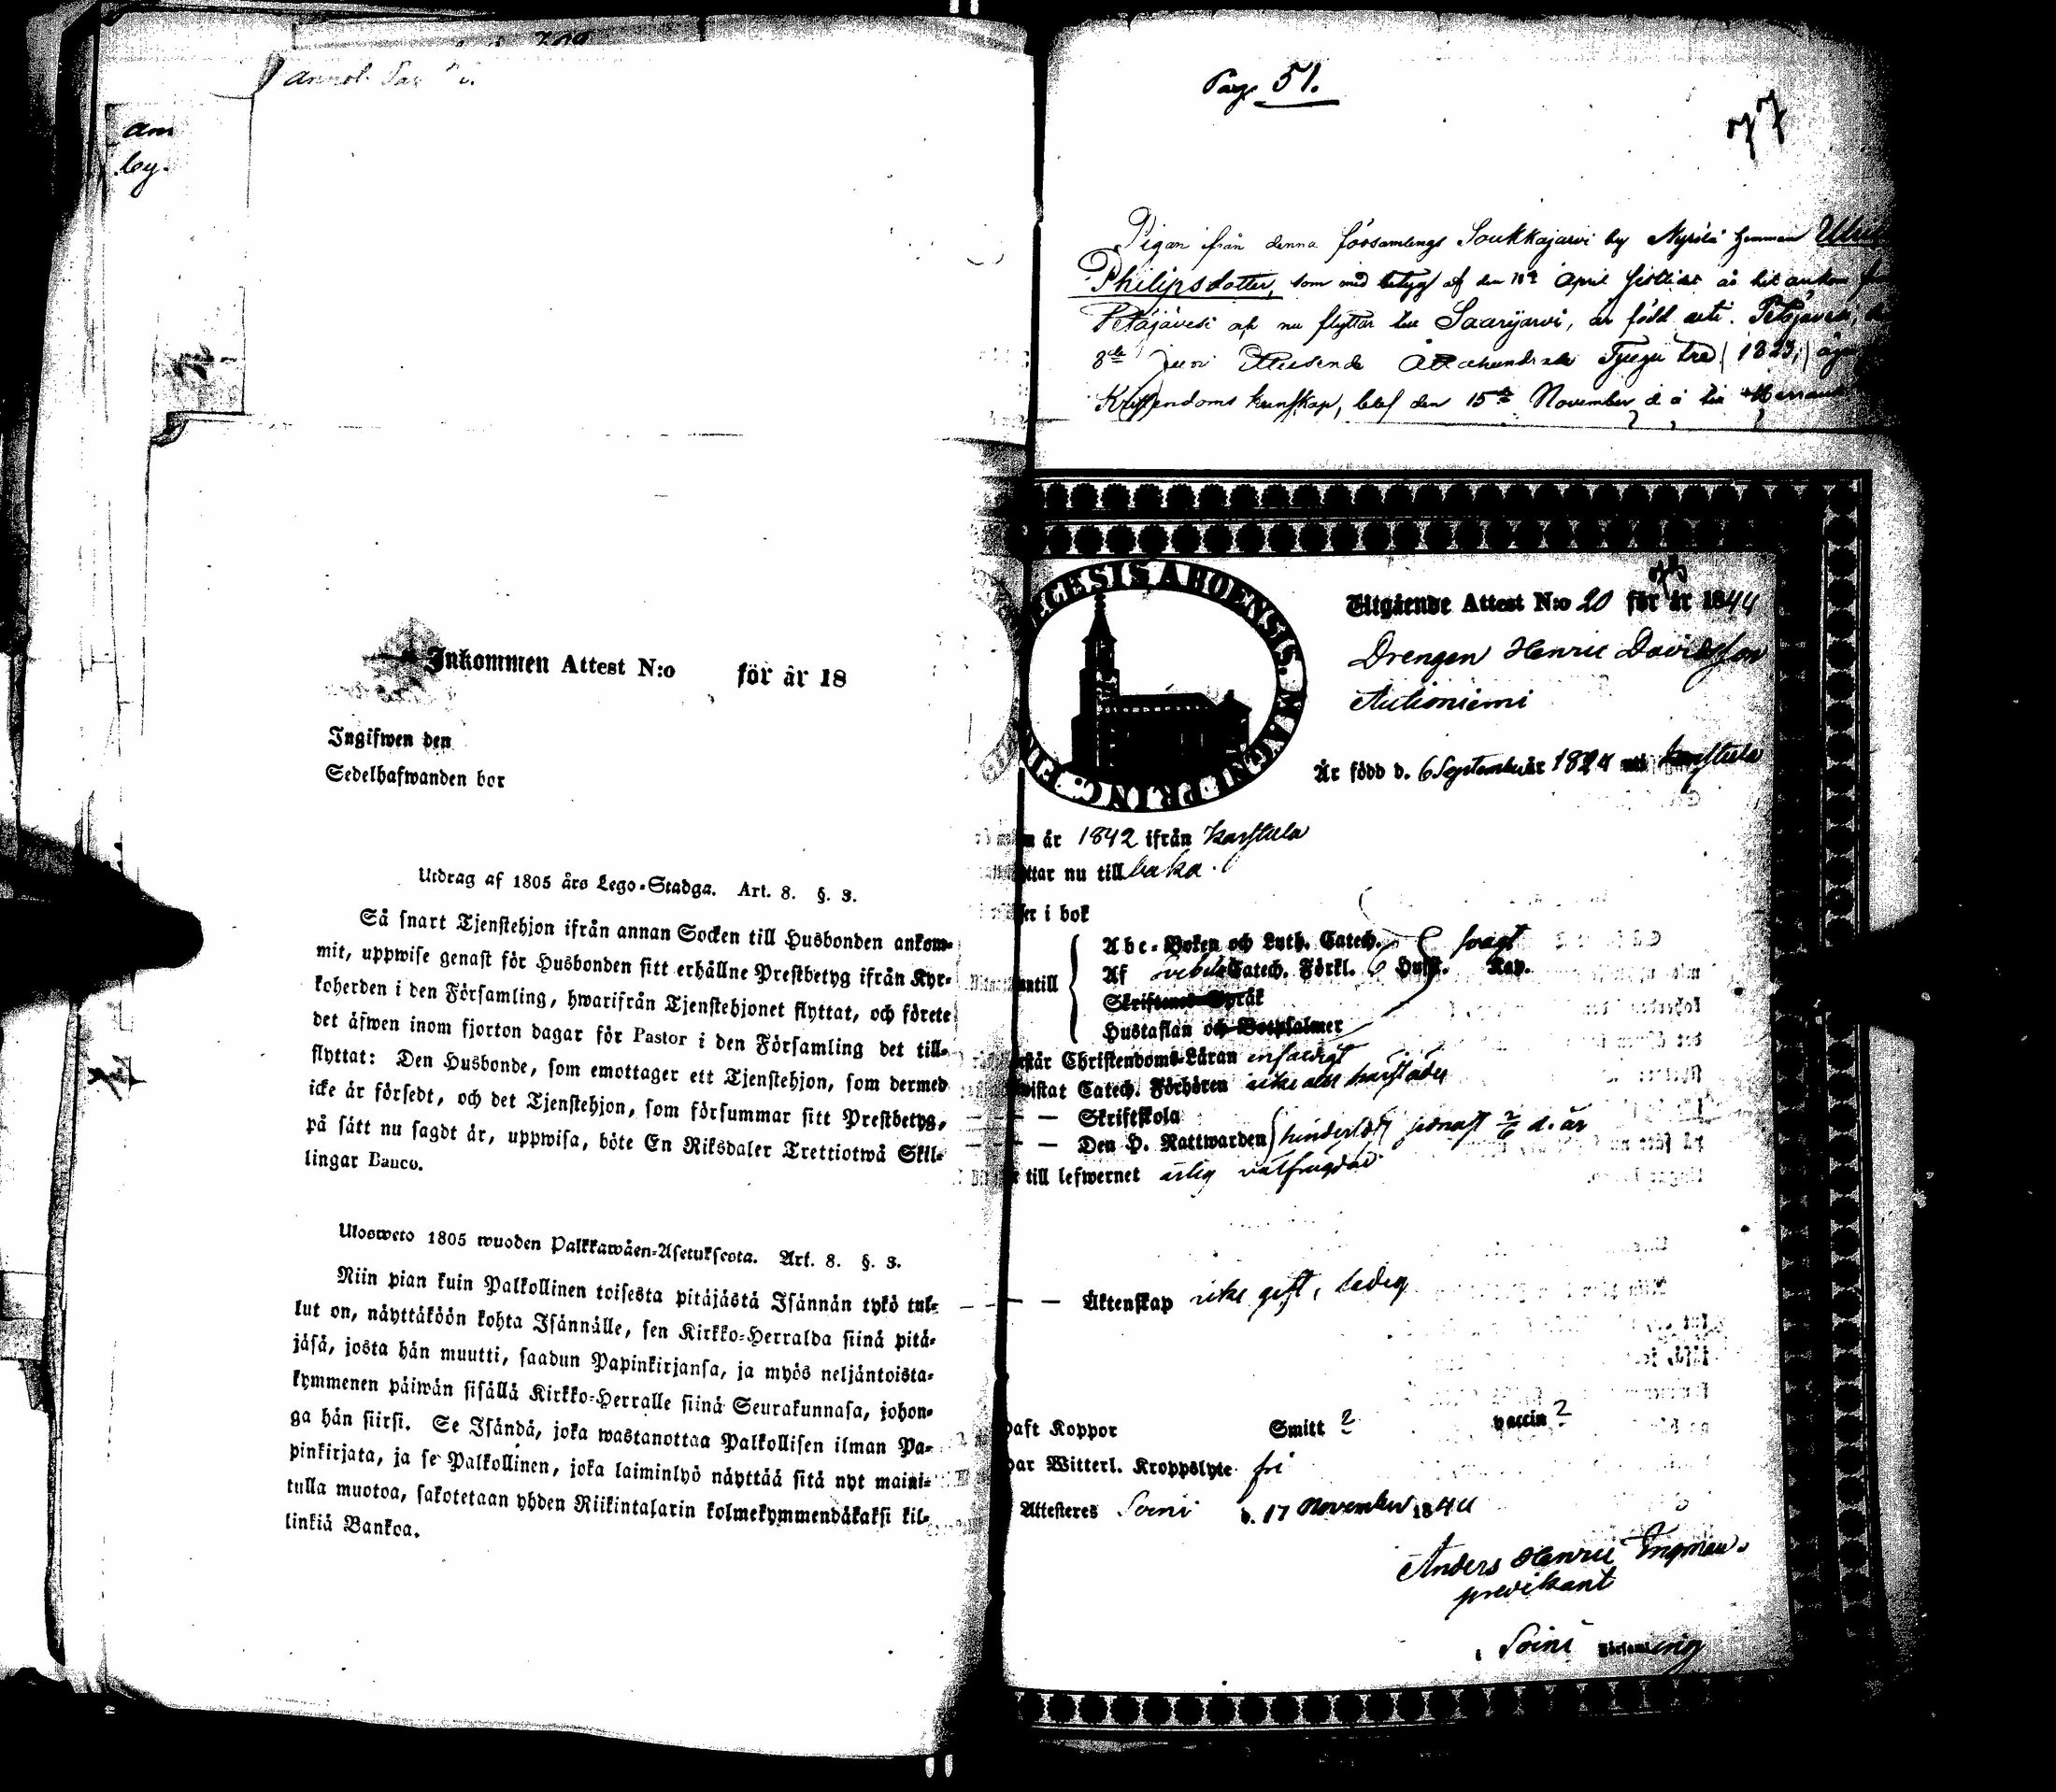 annot. Pag
am
by.
Inkommen Attest N:o för år 18
Ingifwen den
Sedelhafwanden bor
Utdrag af 1805 års Lego-Stadga. Art. 8. §. 3.
Så snart Tjenstehjon ifrån annan Socken till Husbonden ankom-
mit, uppwise genast för Husbonden sitt erhållne Prestbetyg ifrån Kyr-
koherden i den Församling, hwarifrån Tjenstehjonet flyttat, och förete
det äfwen inom fjorton dagar för Pastor i den Församling det till-
flyttat: Den Husbonde, som emottager ett Tjenstehjon, som dermed
icke är försedt, och det Tjenstehjon, som försummar sitt Prestbetyg,
på sätt nu sagdt är, uppwisa, böte En Riksdaler Trettiotwå Skil-
lingar Banco.
Ulosweto 1805 wuoden Palkkawäen-Asetuksesta. Art. 8. §. 3.
Niin pian kuin Palkollinen toisesta pitäjästä Isännän tykö tul-
lut on, näyttäköön kohta Isännälle, sen Kirkko-Herralda siinä pitä-
jäsä, josta hän muutti, saadun Papinkirjansa, ja myös neljäntoista-
kymmenen päiwän sisällä Kirkko-Herralle siinä Seurakunnasa, johon-
ga hän siirsi. Se Isändä, joka wastanottaa Palkollisen ilman Pa-
pinkirjata, ja se Palkollinen, joka laiminlyö näyttää sitä nyt maini-
tulla muotoa, sakotetaan yhden Riikintalarin kolmekymmendäkaksi kil-
linkiä Bankoa.
Pag. 51.
77
Pigan från denna församlings Soukkajarvi by Nyrölä hemman
Philipsdotter, som med betyg af den April sistlidet år hit ankom
Petäjävesi och nu flyttar till Saarijarvi, är född uti Petäjävesi,
8de Juni Ettusende Åttahundrade Tjugu tre (1823,) äger
Kristendoms kunskap, blef den 15de November d. å. till
DIOECESIS ABOENSIS. MAGNI PRINC. FENN
Utgående Attest N:o 20 för år 1844
Drengen Henric Davidsson
Autioniemi
År född d. 6 September år 1824 uti Karstula
år 1842 ifrån Karstula
ttar nu till baka.
er i bok
Utantill Abc-Boken och Luth. Catech. svagt
Af Svebelii Catech. Förkl. 6 Husf. Kap.
Skriftenes Språk
Hustaflan och Botpsalmer
står Christendoms-Läran enfaldigt
wistat Catech. Förhören
— — Skriftskola
— — Den H. Nattwarden hinderlöst, senast 2/6 d. år
till lefwernet ärlig välfrägdad
— — Äktenskap icke gift, ledig
haft Koppor Smitt ? vaccin ?
har Witterl. Kroppslyte fri
Attesteres Soini d. 17 November 1844
Anders Henric Ingman.
predikant
i Soini Församling